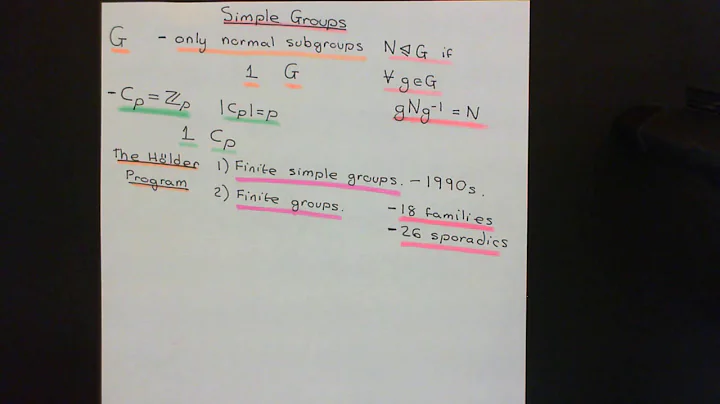 Simple Groups
G - only normal subgroups N ⊲ G if
1 G ∀ g ∈ G
gNg⁻¹ = N
- Cₚ = ℤₚ |Cₚ| = p
1 Cₚ
The Hölder Program
1) Finite simple groups. - 1990s.
2) Finite groups.
- 18 families
- 26 sporadics